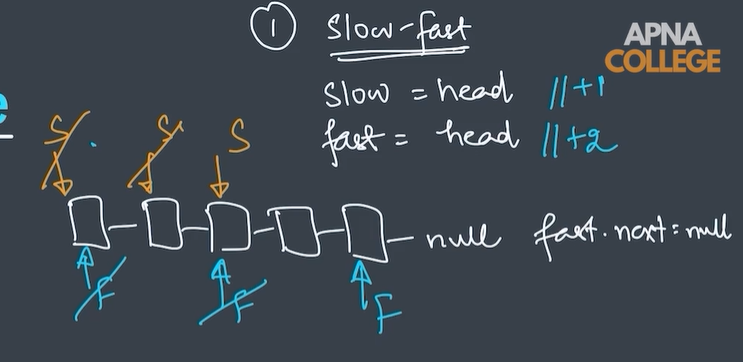 ① Slow-fast
APNA
COLLEGE
slow = head //+1
fast = head //+2
e
S S S
null fast.next = null
F F F